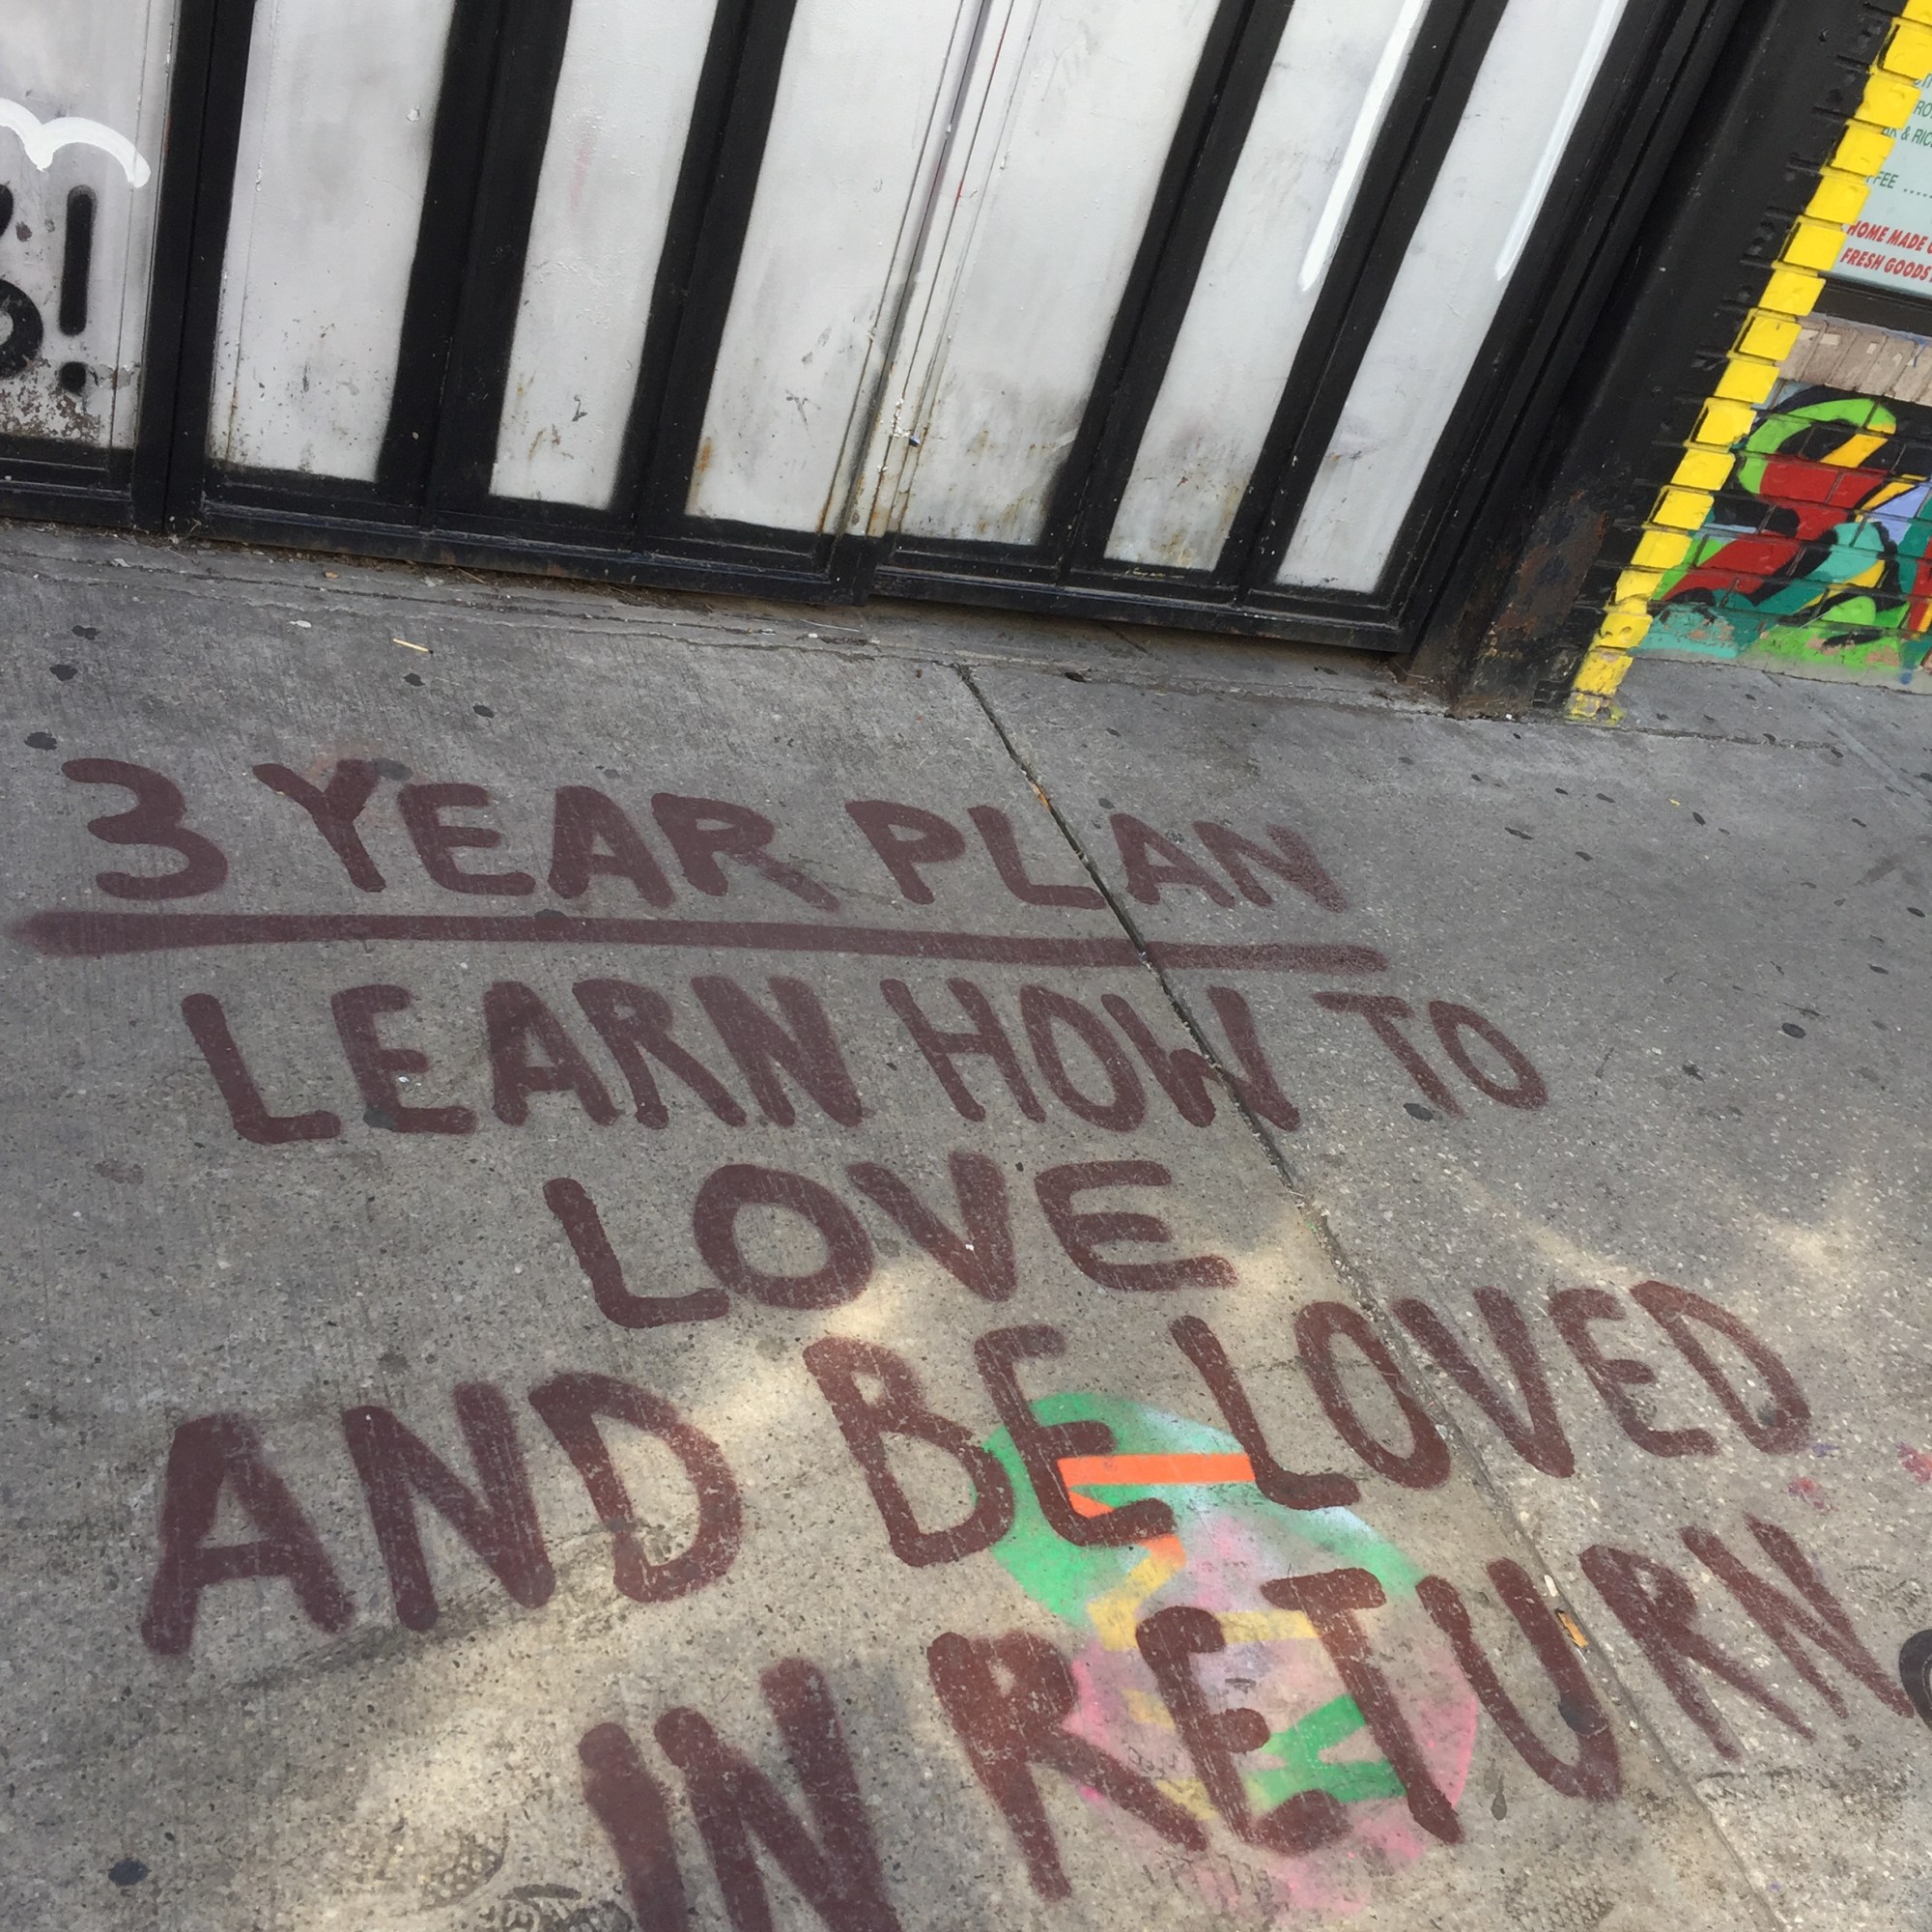 HOME MADE
FRESH GOODS
3 YEAR PLAN
LEARN HOW TO
LOVE
AND BE LOVED
IN RETURN